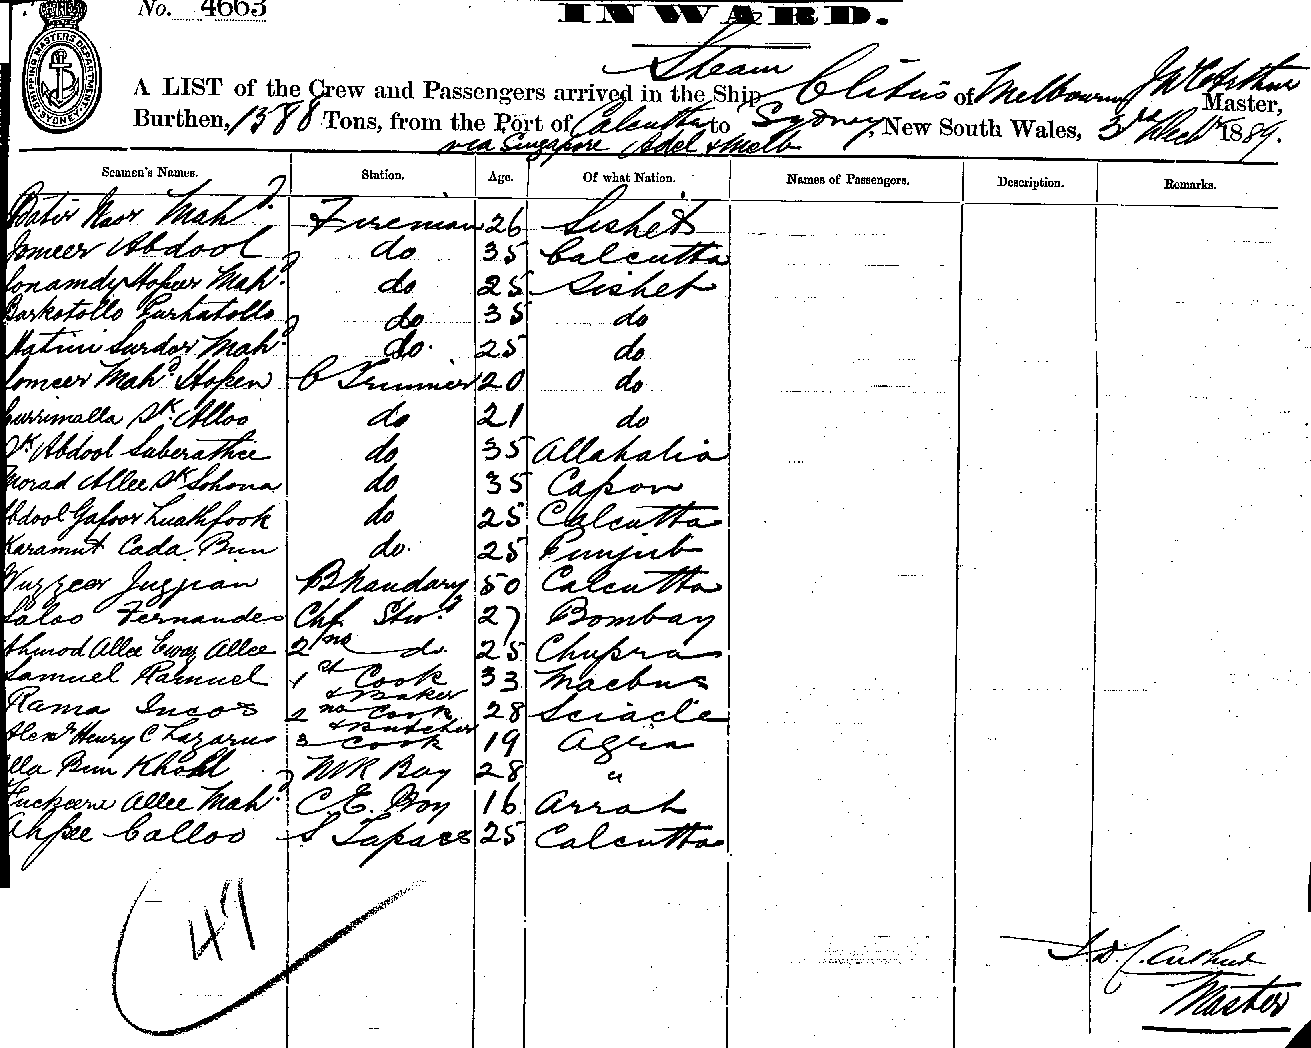 No. 4663
INWARD.
SHIPPING MASTERS DEPARTMENT SYDNEY
Steam
A LIST of the Crew and Passengers arrived in the Ship Clitus of Melbourne J McArthur Master,
Burthen, 1588 Tons, from the Port of Calcutta to Sydney, New South Wales, 3rd Decr 1889.
via Singapore Adel & Melb
Seamen's Names. Station. Age. Of what Nation. Names of Passengers. Description. Remarks.
Noor Mahd. Fireman 26 Sishet
Jomeer Abdool do 35 Calcutta
Mahd. do 25 Sishet
Barkotollo do 35 do
Surdar Mahd. do. 25 do
Jomeer Mahd. Hopen C Trimmer 20 do
Sk. Alloo do 21 do
Sk. Abdool Suberathee do 35 Allahalia
Morad Allee Sk Sohona do 35 Capon
Abdool Gafoor do 25 Calcutta
Karamut Cada Bun do. 25 Punjub
Wuzzeer Juggian Bhandary 50 Calcutta
Saloo Fernandes Chf Stwd. 27 Bombay
Allee Ewaz Allee 2nd do 25 Chupra
Samuel Ramuel 1st Cook & Baker 33
Rama Incos 2nd Cook & Butcher 28
Alexr Henry C Lazarus 3 Cook 19 Agra
Bun Khohl MR Boy 28 "
Fuckeere Allee Mahd. C. E. Boy 16 Arrah
Calloo S Tapaes 25 Calcutta
47
Master